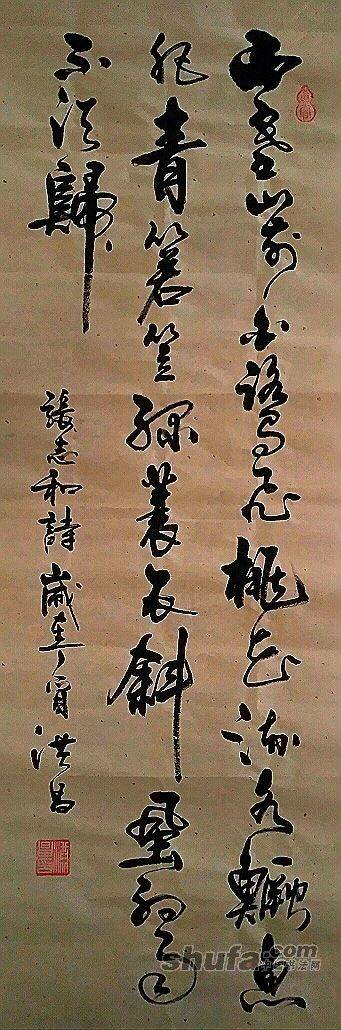 西塞山前白鷺飛桃花流水鱖魚
肥青箬笠綠蓑衣斜風細雨
不須歸
張志和詩歲在丁酉洪昌
shufa.com